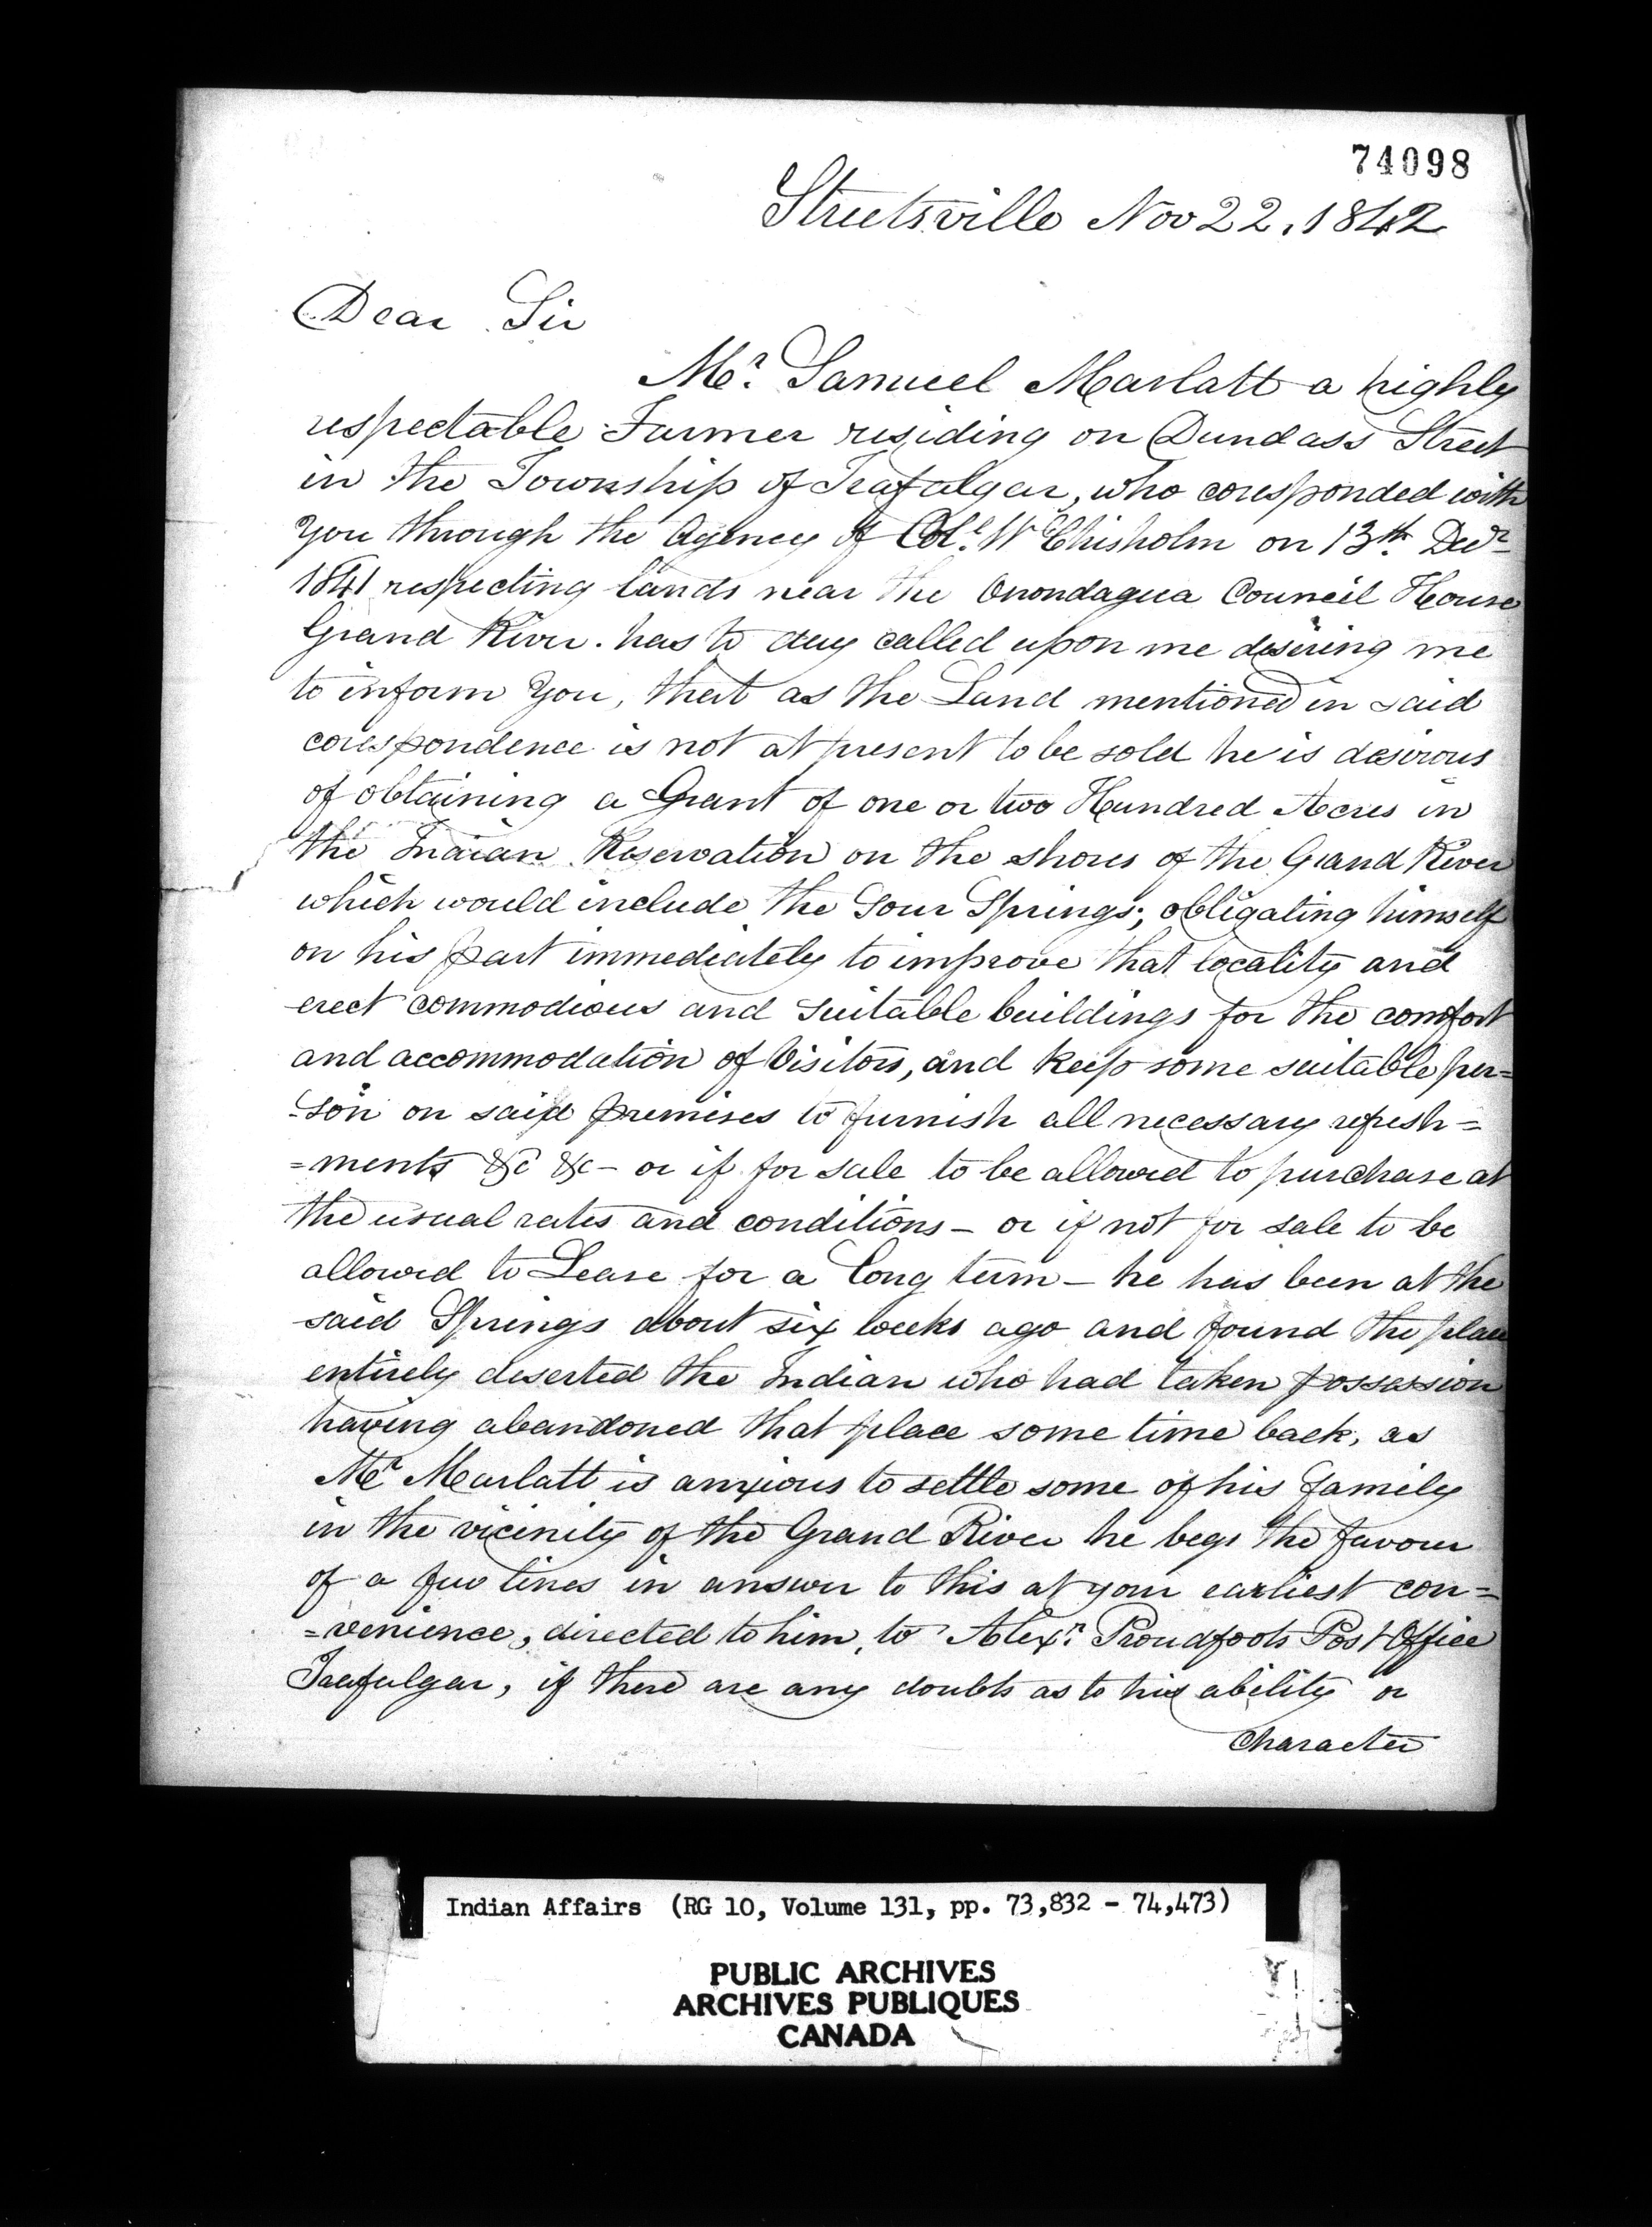 74098
Streetsville Nov 22, 1842
Dear Sir
Mr. Samuel Marlatt a highly
respectable Farmer residing on Dundass Street
in the Township of Trafalgar, who coresponded with
You through the Agency of Coll. Wm Chisholm on 13th Decr
1841 respecting lands near the Onondagua Council House
Grand River. has to day called upon me desiring me
to inform You, that as the Land mentioned in said
corespondence is not at present to be sold he is desirous
of obtaining a Grant of one or two Hundred Acres in
the Indian Reservation on the shores of the Grand River
which would include the Sour Springs; obligating himself
on his part immediately to improve that locality and
erect commodious and suitable buildings for the comfort
and accommodation of Visitors, and keep some suitable per=
=son on said premises to furnish all necessary refresh=
=ments &c &c - or if for sale to be allowed to purchase at
the usual rates and conditions - or if not for sale to be
allowed to Lease for a Long term - he has been at the
said Springs about six weeks ago and found the place
entirely deserted the Indian who had taken possession
having abandoned that place some time back, as
Mr Marlatt is anxious to settle some of his family
in the vicinity of the Grand River he begs the favour
of a few lines in answer to this at your earliest con=
=venience, directed to him, to Alexr. Proudfoots Post Office
Trafalgar, if there are any doubts as to his ability or
character
Indian Affairs (RG 10, Volume 131, pp. 73,832 - 74,473)
PUBLIC ARCHIVES
ARCHIVES PUBLIQUES
CANADA